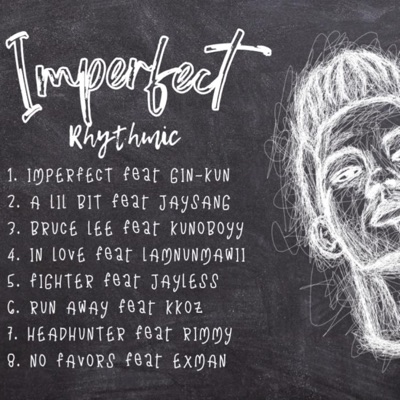 Imperfect
Rhythmic
1. IMPERFECT feat GIN-KUN
2. A LIL BIT feat JAYSANG
3. BRUCE LEE feat KUNOBOYY
4. IN LOVE feat LAMNUNMAWII
5. FIGHTER feat JAYLESS
6. RUN AWAY feat KKOZ
7. HEADHUNTER feat RIMMY
8. NO FAVORS feat EXMAN